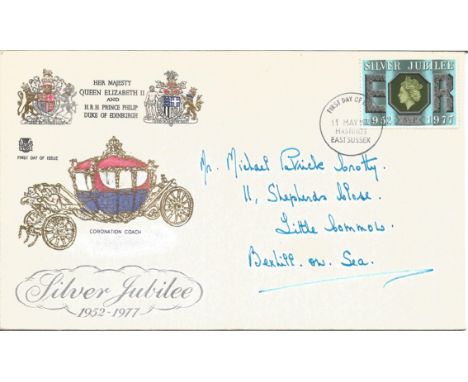 HER MAJESTY
QUEEN ELIZABETH II
AND
H.R.H PRINCE PHILIP
DUKE OF EDINBURGH
FIRST DAY OF ISSUE
CORONATION COACH
Silver Jubilee
1952-1977
SILVER JUBILEE
E R
1952 1977
FIRST DAY OF
11 MAY
HASTINGS
EAST SUSSEX
Mr. Michael Patrick Crotty,
11, Shepherds Close.
Little Common.
Bexhill. on. Sea.